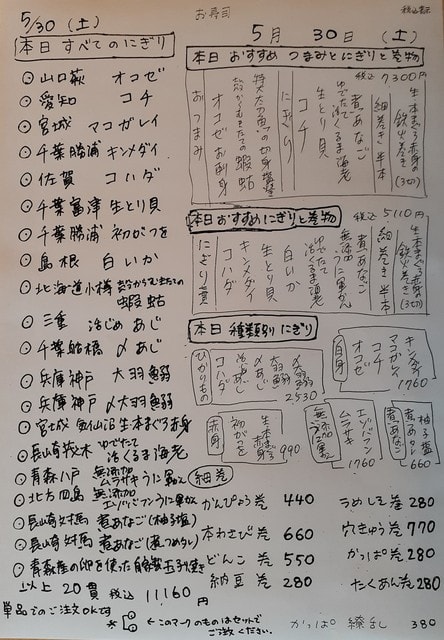 お寿司
税込表示
5/30（土）
本日すべてのにぎり
山口萩 オコゼ
愛知 コチ
宮城 マコガレイ
千葉勝浦 キンメダイ
佐賀 コハダ
千葉富津 生とり貝
千葉勝浦 初がつを
島根 白いか
北海道小樽 殻からむきたての蝦蛄
三重 活じめ あじ
千葉船橋 〆あじ
兵庫神戸 大羽鰯
兵庫神戸 〆大羽鰯
宮城 気仙沼 生本まぐろ赤身
長崎 ゆでたて活くるま海老
青森八戸 無添加ムラサキうに軍かん
北方四島 無添加エゾバフンうに軍かん
長崎対馬 煮あなご（柚子塩）
長崎対馬 煮あなご（煮つめタレ）
青森産の卵を使った自家製玉子焼き
以上 20貫 税込 11160円
単品でのご注文OKです
5月 30日（土）
本日おすすめ つまみとにぎりと巻物
税込 7300円
おつまみ
オコゼお刺身
殻からむきたての蝦蛄
特大太刀魚の切身塩焼
にぎり
コチ
生とり貝
ゆでたて活くるま海老
煮あなご
細巻き半本
生本まぐろ赤身の鉄火巻き（3切）
本日おすすめにぎりと巻物
税込 5110円
にぎり 貫
コハダ
キンメダイ
生とり貝
白いか
ゆでたて活くるま海老
無添加うに軍かん
煮あなご
細巻き半本
生本まぐろ赤身の鉄火巻き（3切）
本日 種類別にぎり
ひかりもの
コハダ
活〆あじ
〆あじ
大羽鰯
〆大羽鰯
2530
白身
オコゼ
コチ
マコガレイ
キンメダイ
1760
赤身
初がつを
生本まぐろ赤身
990
無添加うに軍かん
ムラサキ
エゾバフン
1760
煮あなご
煮あなご
柚子塩
660
細巻
かんぴょう巻 440
本わさび巻 660
どんこ巻 550
納豆巻 280
うめしそ巻 280
穴きゅう巻 770
かっぱ巻 280
たくあん巻 280
かっぱ 繚乱 380
＊ このマークのものはセットでご注文ください。